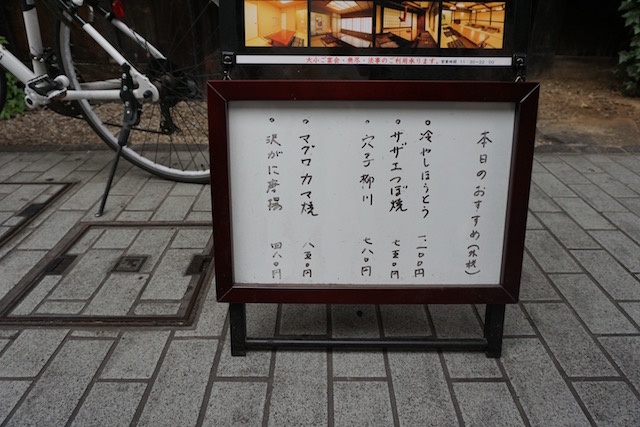 大小ご宴会・無尽・法事のご利用承ります。 営業時間 11:30-22:30
本日のおすすめ(税抜)
冷やしほうとう 一、一〇〇円
サザエつぼ焼 七五〇円
穴子柳川 七八〇円
マグロカマ焼 八五〇円
沢がに唐揚 四八〇円